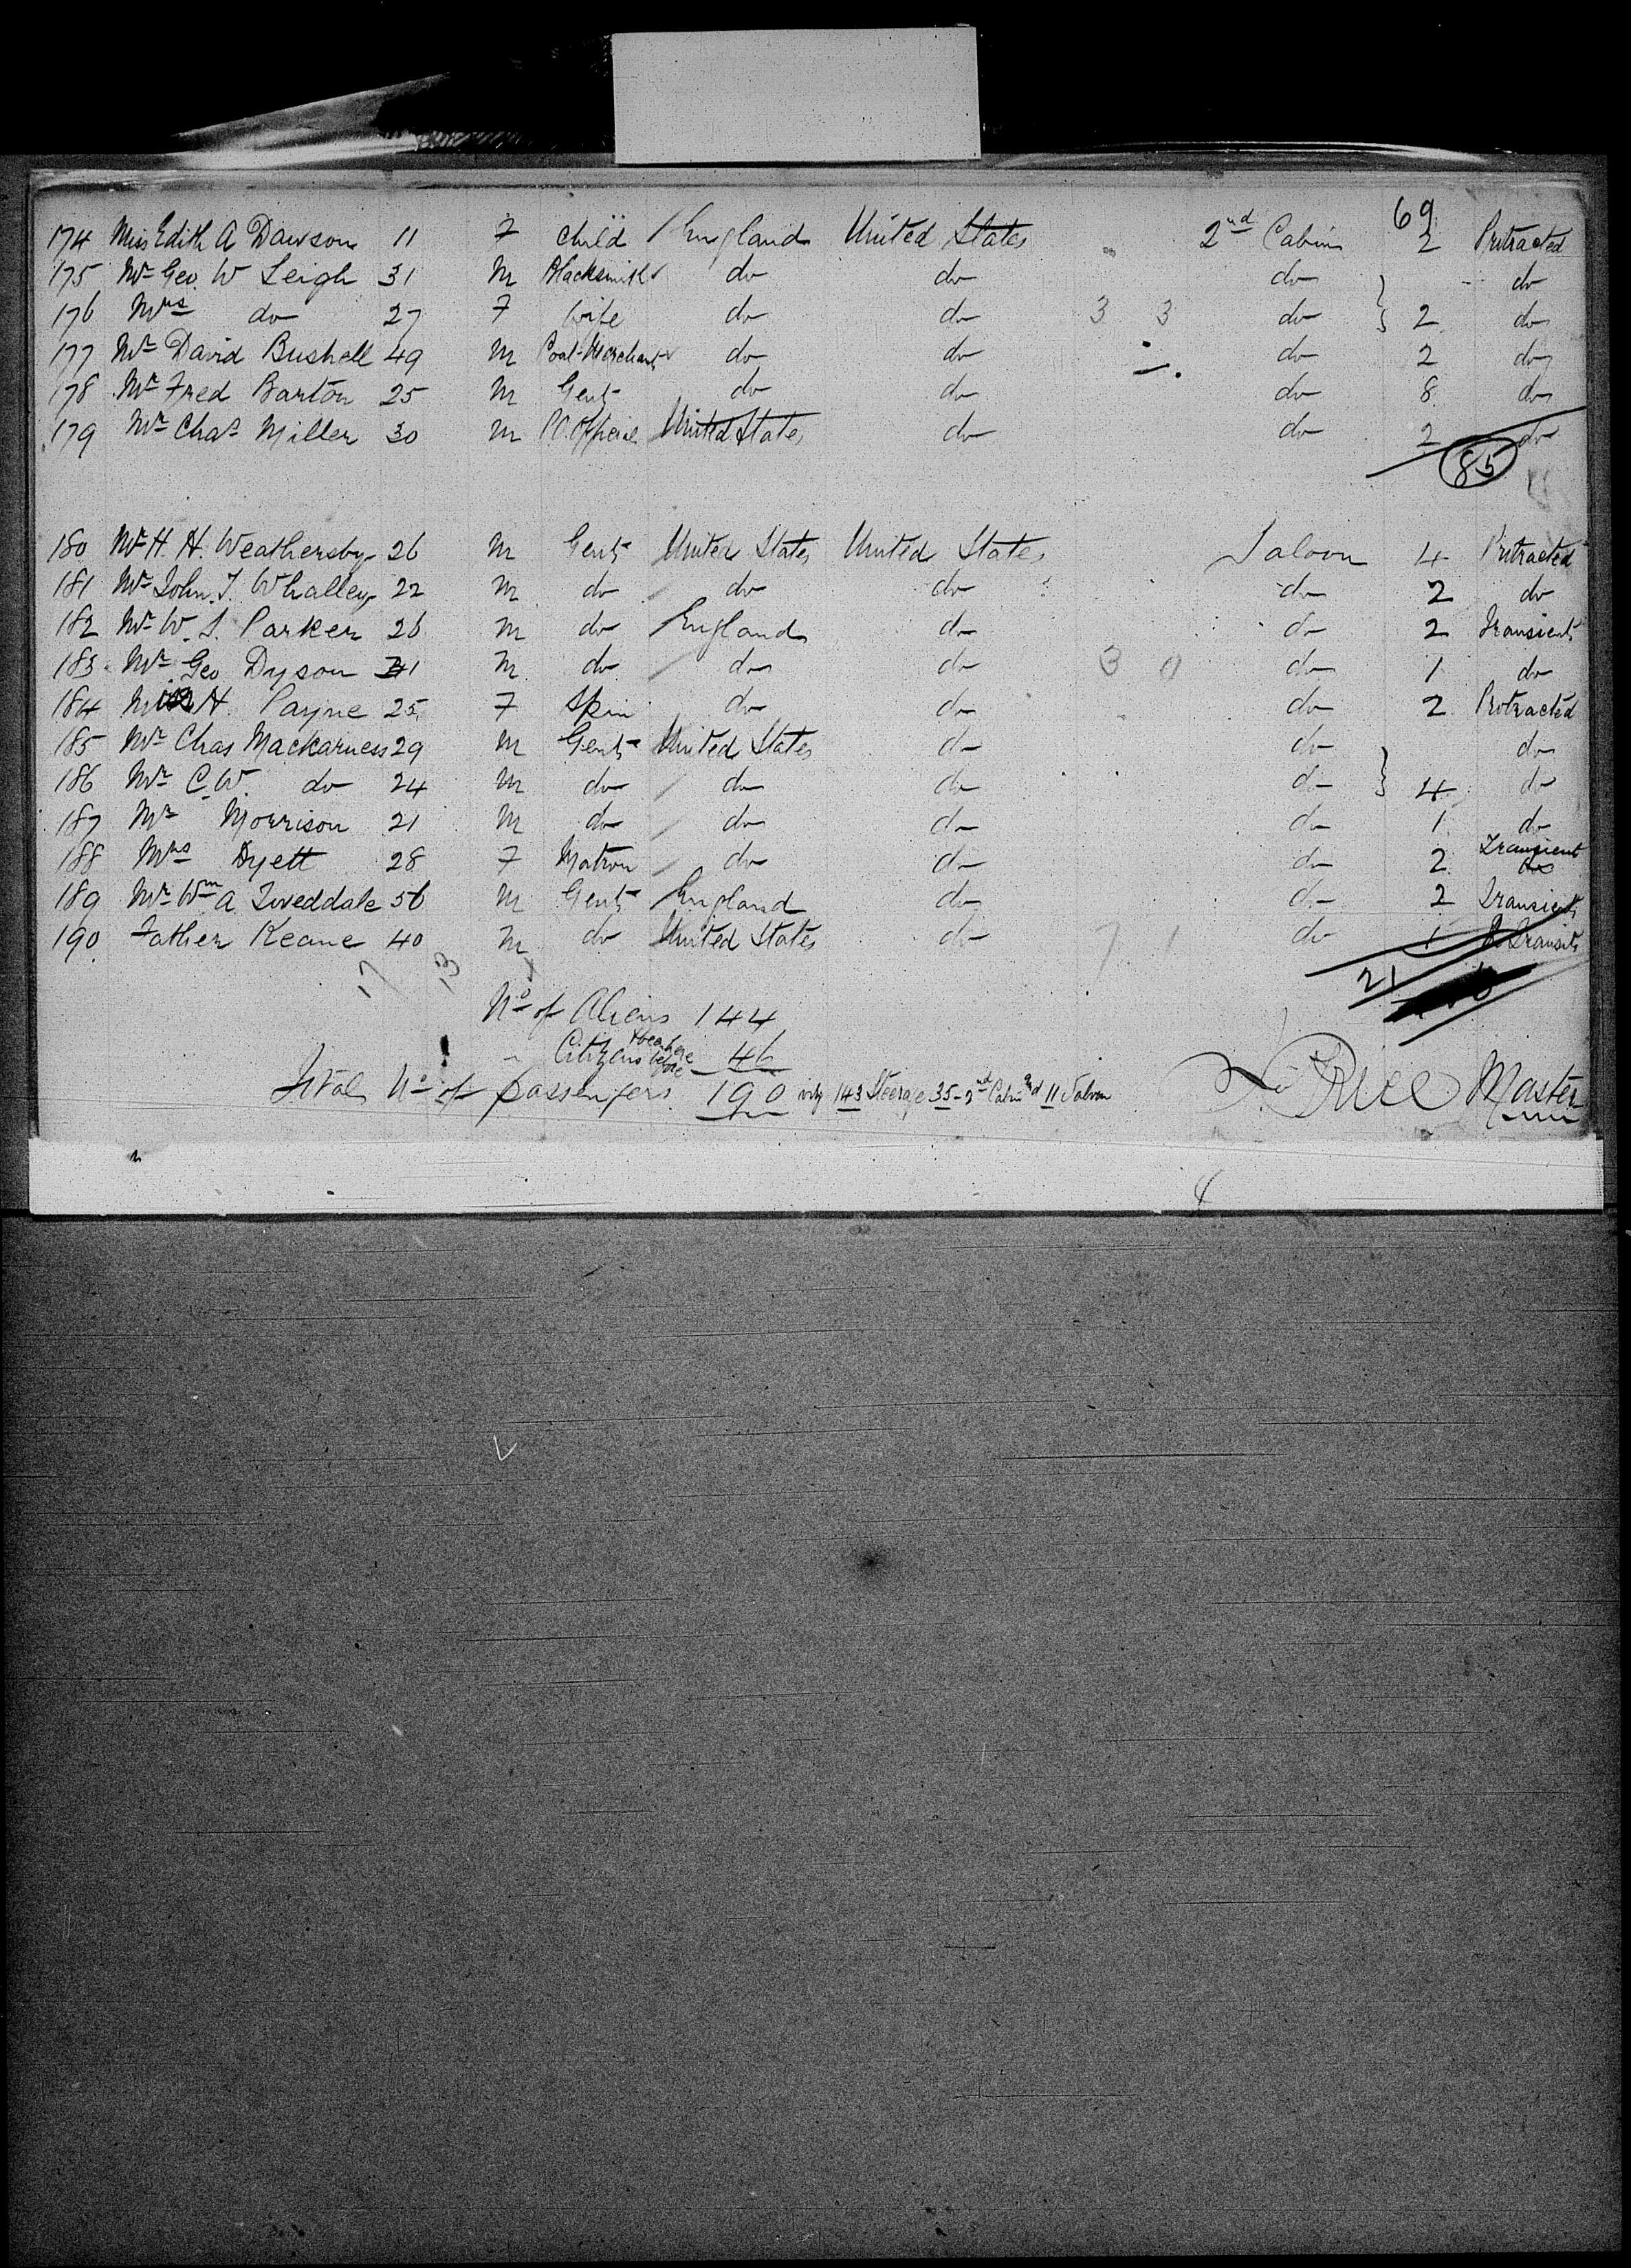 69
174 Miss Edith A Dawson 11 F child England United States 2nd Cabin 2 Protracted
175 Mr Geo. W Leigh 31 M Blacksmith do do do do
176 Mrs do 27 F Wife do do 3 3 do 2 do
177 Mr David Bushell 49 M Coal-Merchant do do do 2 do
178 Mr Fred Barton 25 M Gent do do do 8 do
179 Mr Chas Miller 30 M P.O. Official United States do do 2 do
85
180 Mr H. H. Weathersby 26 M Gent United States United States Saloon 4 Protracted
181 Mr John. T. Whalley 22 M do do do do 2 do
182 Mr W. S. Parker 26 M do England do do 2 Transient
183 Mr Geo Dyson 41 M do do do 3 0 do 1 do
184 Miss H. Payne 25 F Spin do do do 2 Protracted
185 Mr Chas Mackarness 29 M Gent United States do do do
186 Mr C. W. do 24 M do do do do 4 do
187 Mr Morrison 21 M do do do do 1 do
188 Mrs Dyett 28 F Matron do do do 2 Transient
189 Mr Wm A Tweddale 56 M Gent England do do 2 Transient
190 Father Keane 40 M do United States do 7 1 do 1 Transit
17 13 21
No of Aliens 144
" Citizens been here before 46
Total No of passengers 190 viz 143 Steerage 35-2nd Cabin and 11 Saloon
Price Master